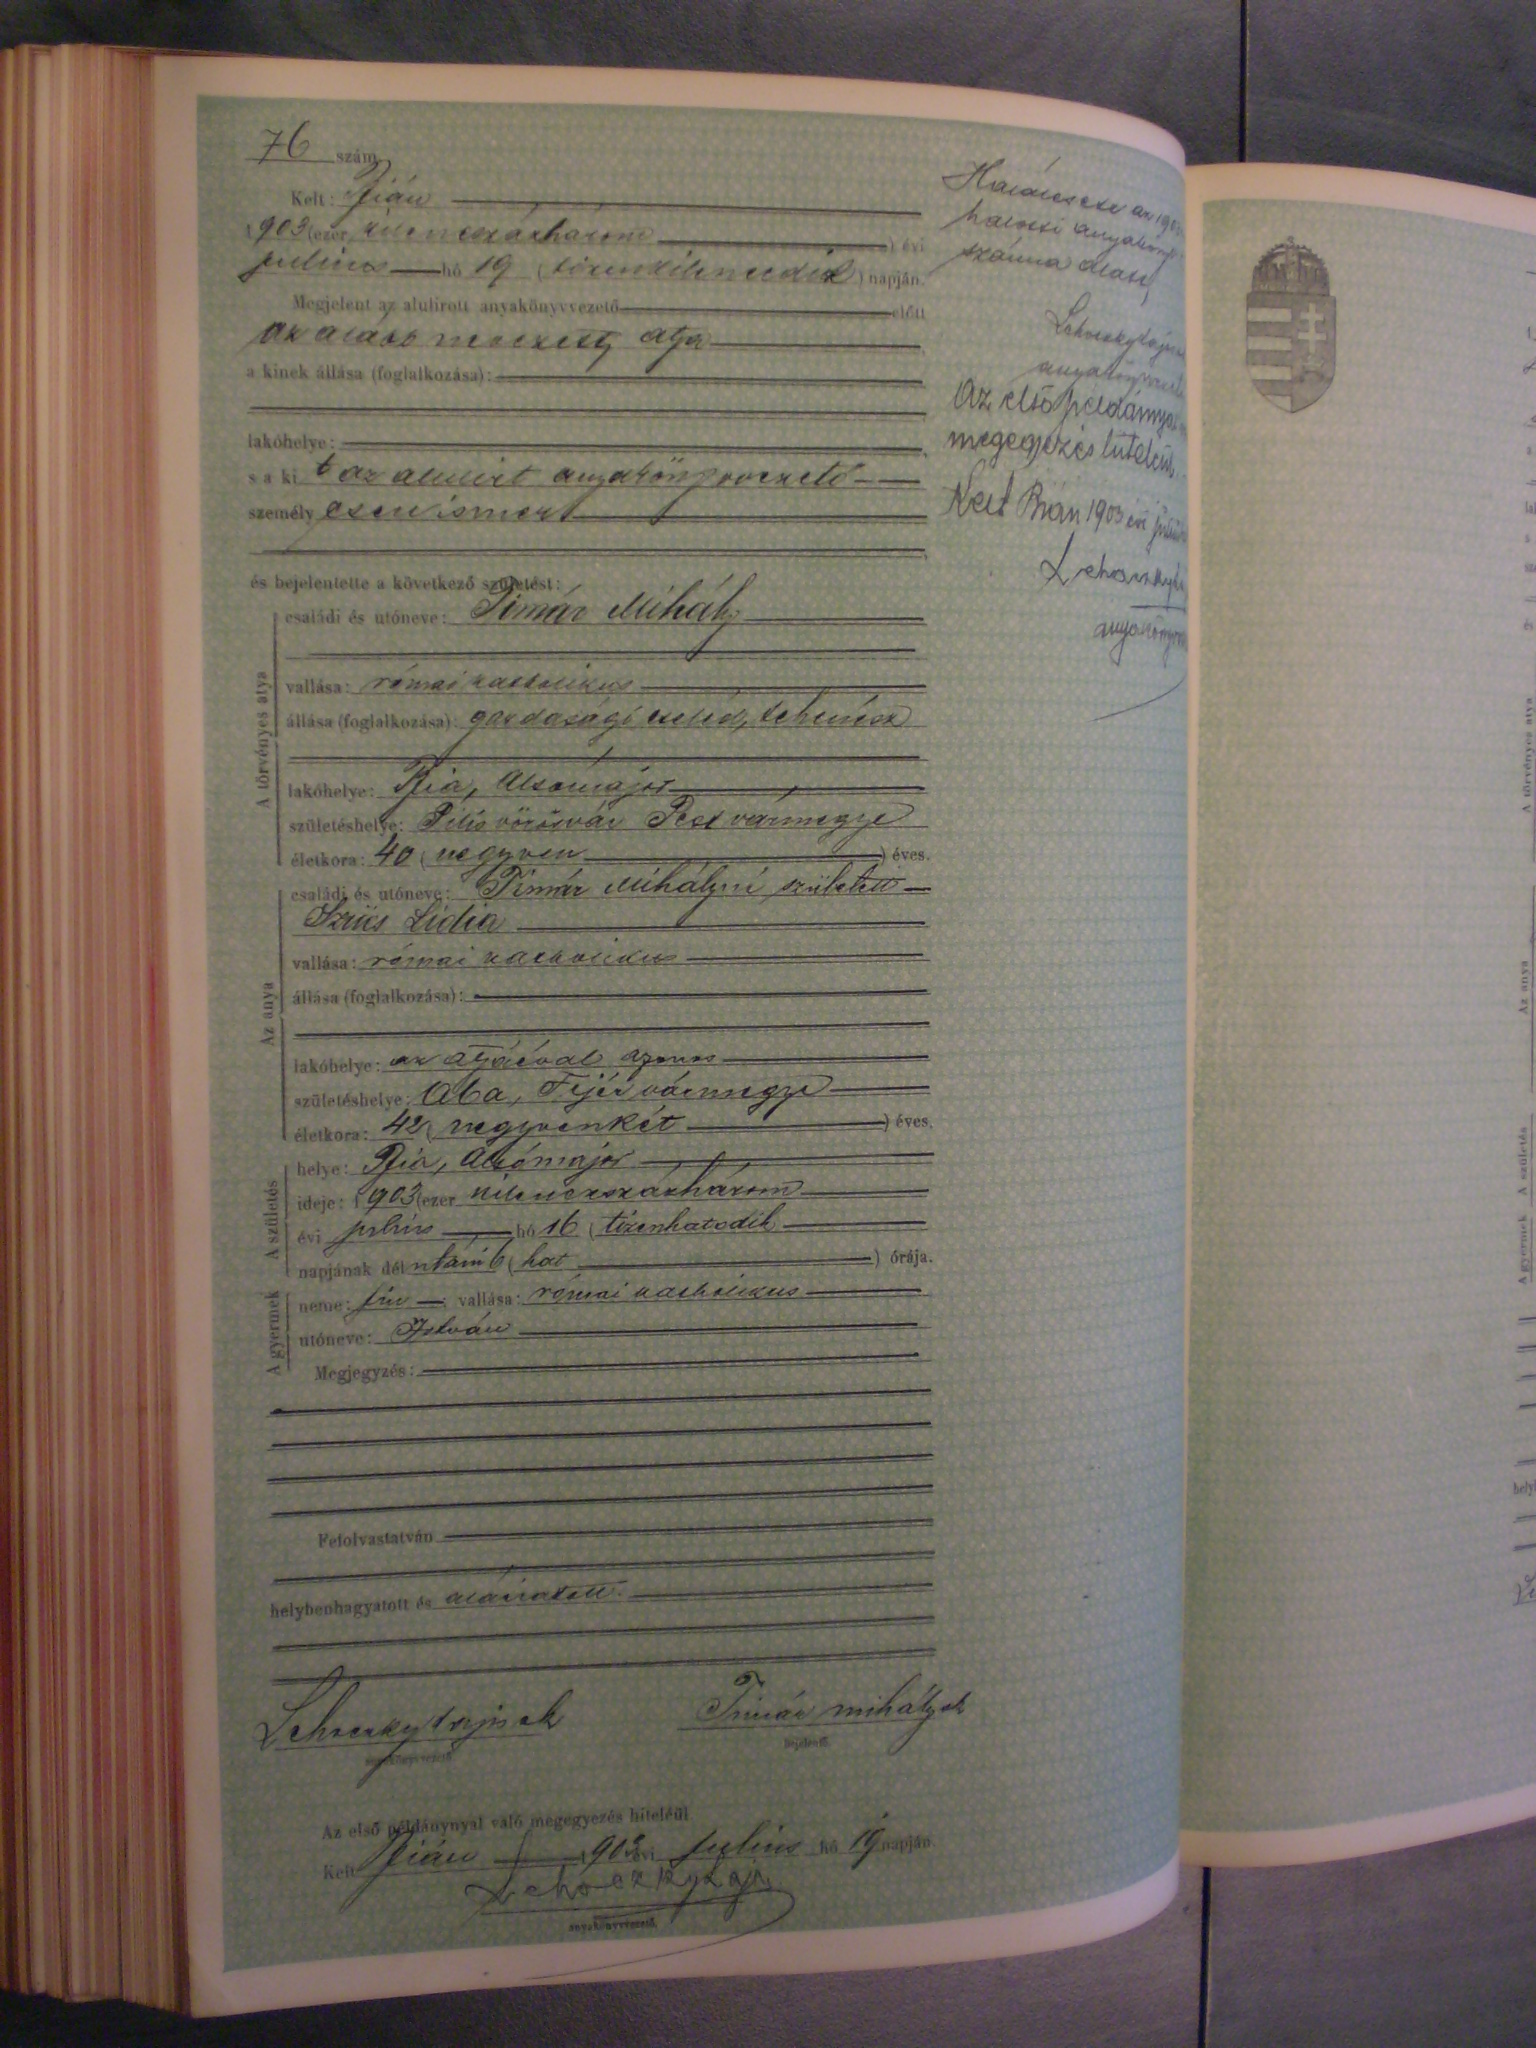 76 szám
Kelt: Bián
1903 (ezer kilencszázhárom) évi
julius hó 19 (tizenkilencedik) napján.
Megjelent az alulirott anyakönyvvezető előtt
az alább nevezett atya
a kinek állása (foglalkozása):
lakóhelye:
s a ki t az alulirt anyakönyvvezető
személyesen ismer
és bejelentette a következő születést:
A törvényes atya
családi és utóneve: Timár Mihály
vallása: római katholikus
állása (foglalkozása): gazdasági cseléd, tehenész
lakóhelye: Bia, Alsómajor
születéshelye: Pilisvörösvár Pest vármegye
életkora: 40 (negyven) éves.
Az anya
családi és utóneve: Timár Mihályné született
Szücs Lidia
vallása: római katholikus
állása (foglalkozása):
lakóhelye: az atyáéval azonos
születéshelye: Aba, Fejér vármegye
életkora: 42 (negyvenkét) éves.
A születés
helye: Bia, Alsómajor
ideje: 1903 (ezer kilenczszázhárom
évi julius hó 16 (tizenhatodik
napjának dél utáni 6 (hat) órája.
A gyermek
neme: fiu vallása: római katholikus
utóneve: István
Megjegyzés:
Felolvastatván
helybenhagyatott és aláiratott.
Timár mihály
anyakönyvvezető
bejelentő.
Az első példánynyal való megegyezés hiteléül
Kelt Bián 1903 évi julius hó 19 napján.
anyakönyvvezető.
az 190
halotti anyakönyv
száma alatt
Az első példánnyal
megegyezés hiteléül.
Kelt Bián 1903 évi julius
A törvényes atya
Az anya
A születés
A gyermek